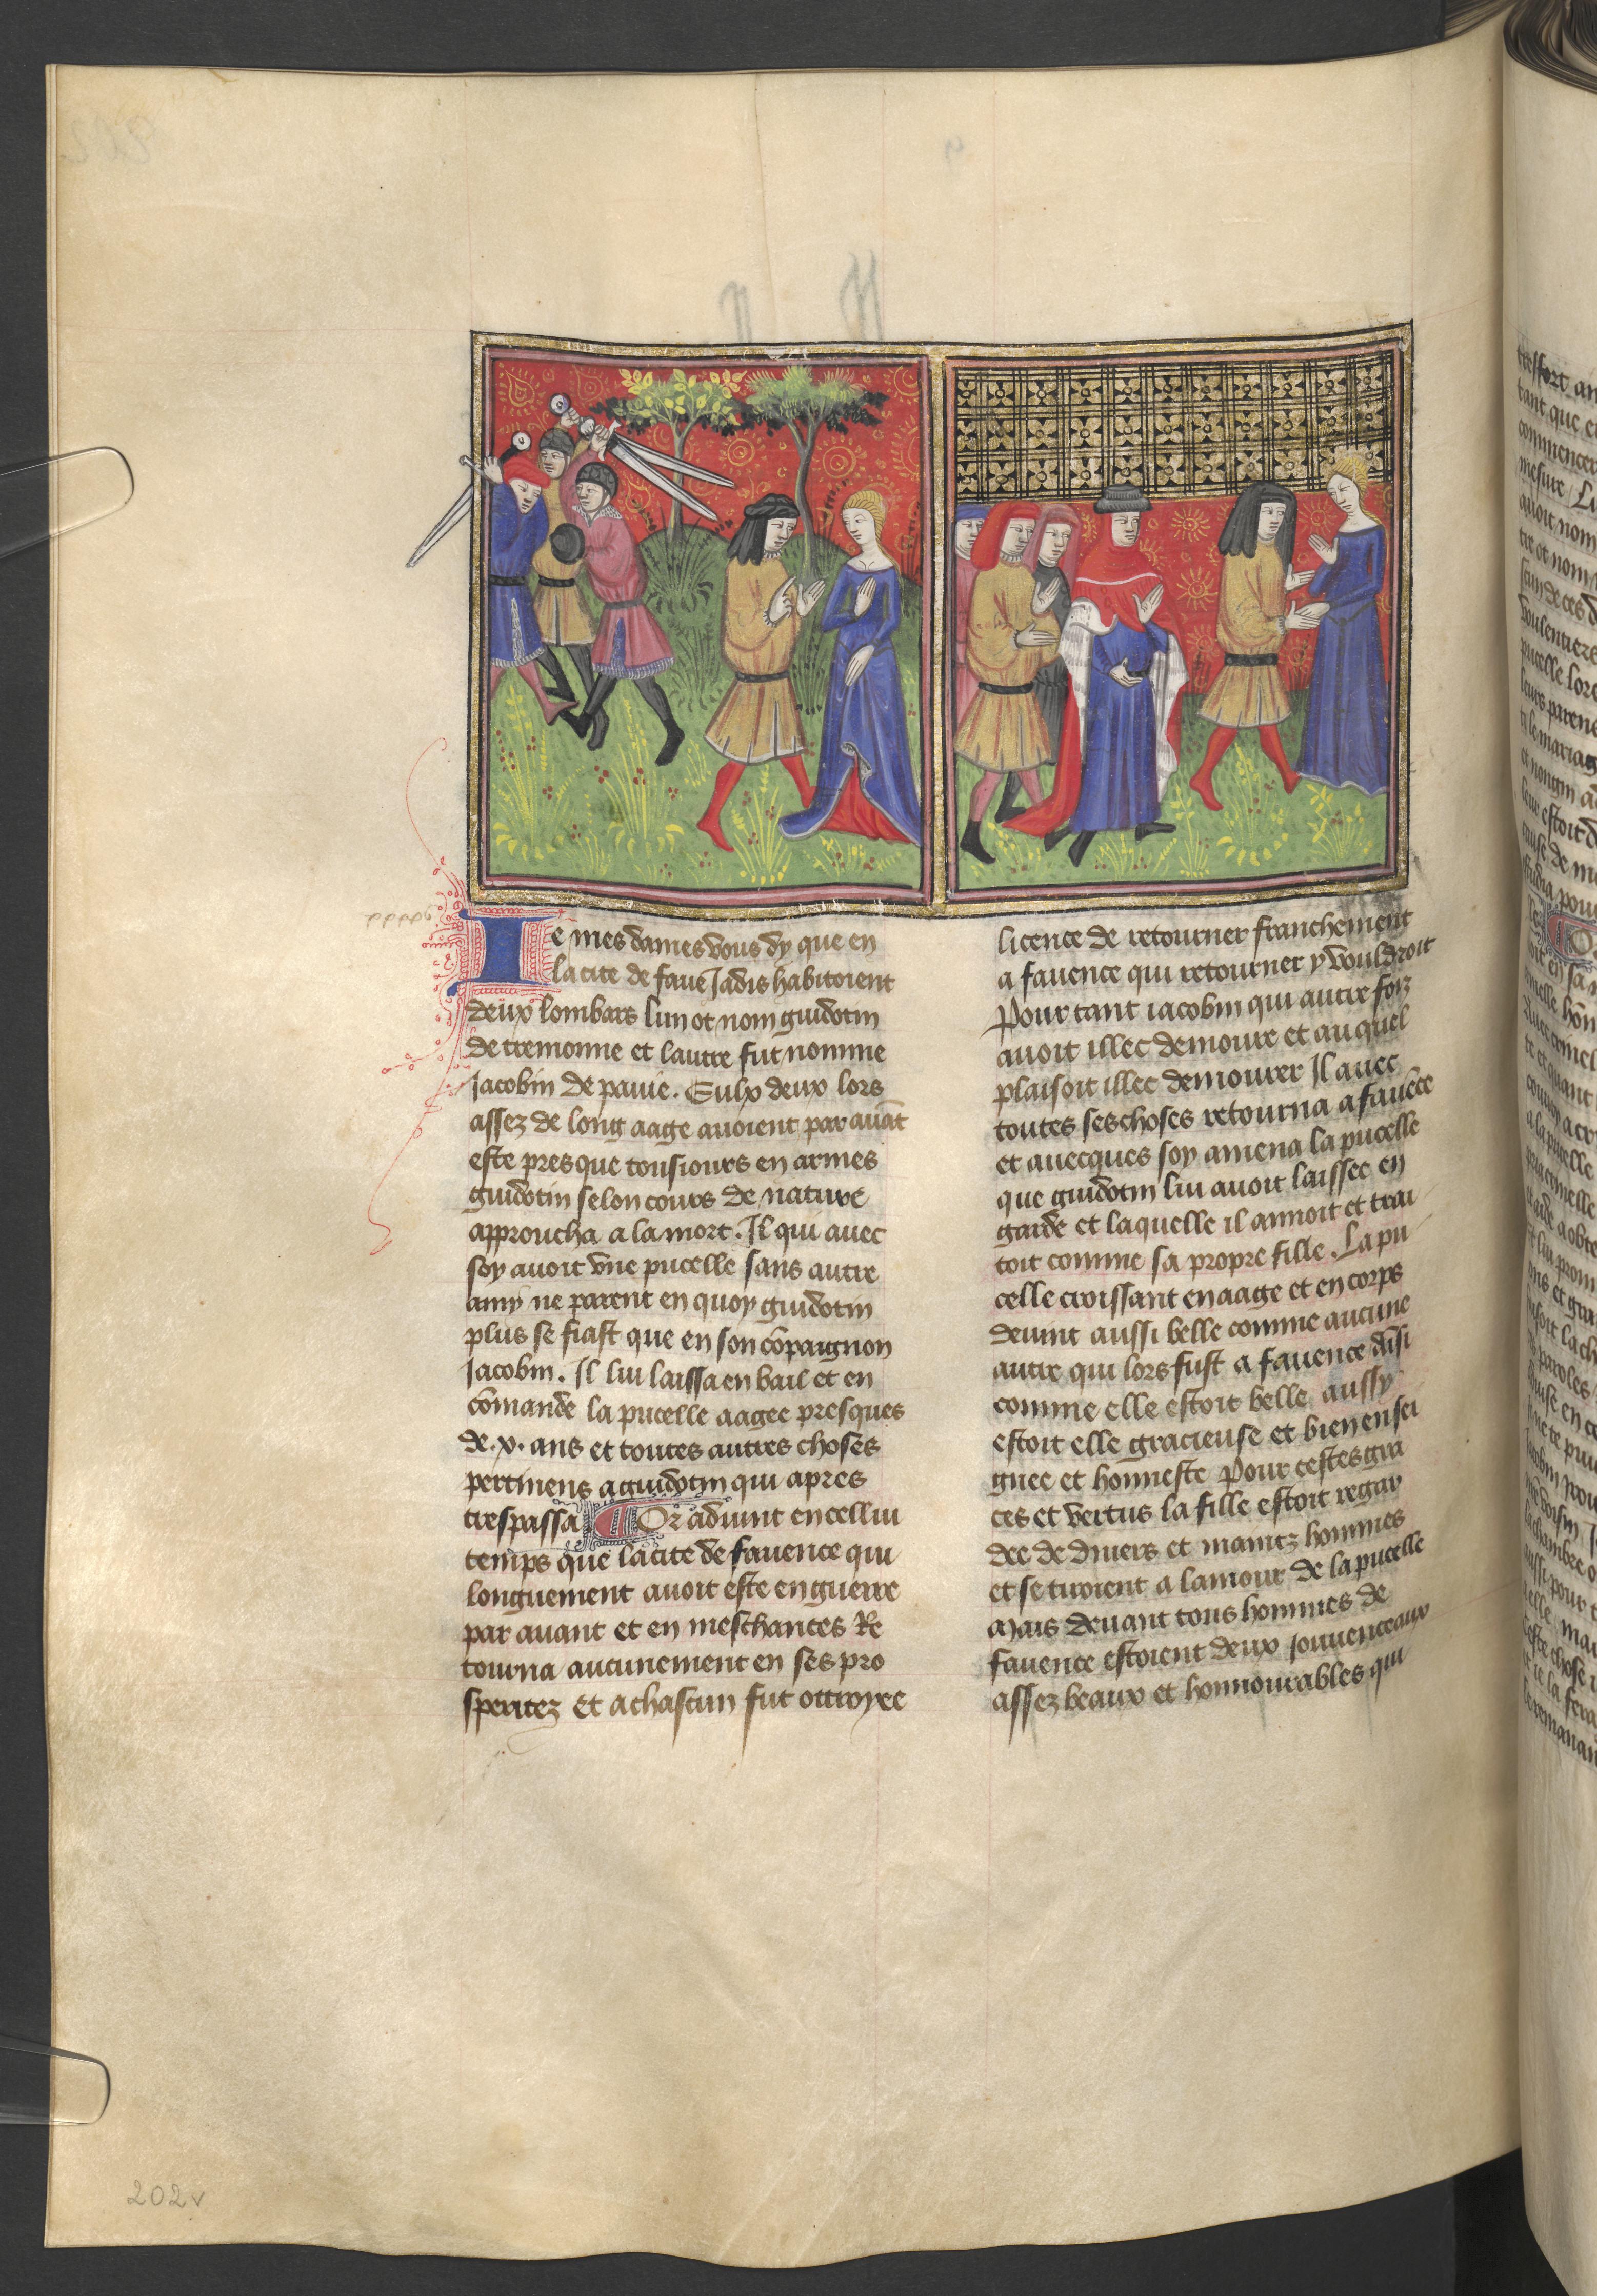 Ie mes dames vous dy que en
la cite de fauē Jadis habitoient
deux lombars lun ot nom guidotin
de cremonne et lautre fut nomme
Jacobin de pauie. Eulx deux lors
assez de long aage auoient par auāt
este presque tousiours en armes
guidotin selon cours de nature
approucha a la mort. Il qui auec
soy auoit vne pucelle sans autre
amy ne parent en quoy guidotin
plus se fiast que en son cōpaignon
Jacobin. Il lui laissa en bail et en
cōmande la pucelle aagee presques
de .x. ans et toutes autres choses
pertinens a guidotin qui apres
trespassa Or aduint en cellui
temps que la cite de fauence qui
longuement auoit este en guerre
par auant et en meschantes Re
tourna aucunement en ses pro
speritez Et a chascun fut ottroyee
licence de retourner franchement
a fauence qui retourner y vouldroit
Pour tant iacobin qui autre foiz
auoit illec demoure et au quel
plaisoit illec demourer Il auec
toutes ses choses retourna a fauēce
et auecques soy amena la pucelle
que guidotin lui auoit laissee en
garde et laquelle il amoit et trai
toit comme sa propre fille. La pu
celle croissant en aage et en corps
deuint aussi belle comme aucune
autre qui lors fust a fauence Aīsi
comme elle estoit belle aussy
estoit elle gracieuse et bien ensei
gnee et honneste Pour cestes gra
ces et vertus la fille estoit regar
dee de diuers et maintz hommes
et se tiroient a lamour de la pucelle
Mais deuant tous hommes de
fauence estoient deux jouuenceaux
assez beaux et honnourables qui
202v